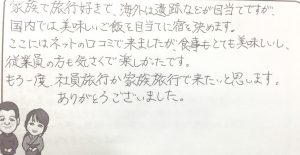 家族で旅行好きで、海外は遺跡などが目当てですが、
国内では、美味しいご飯を目当てに宿を決めます。
ここにはネットの口コミで来ましたが食事もとても美味しいし、
従業員の方も気さくで楽しかったです。
もう一度、社員旅行か家族旅行で来たいと思います。
ありがとうございました。